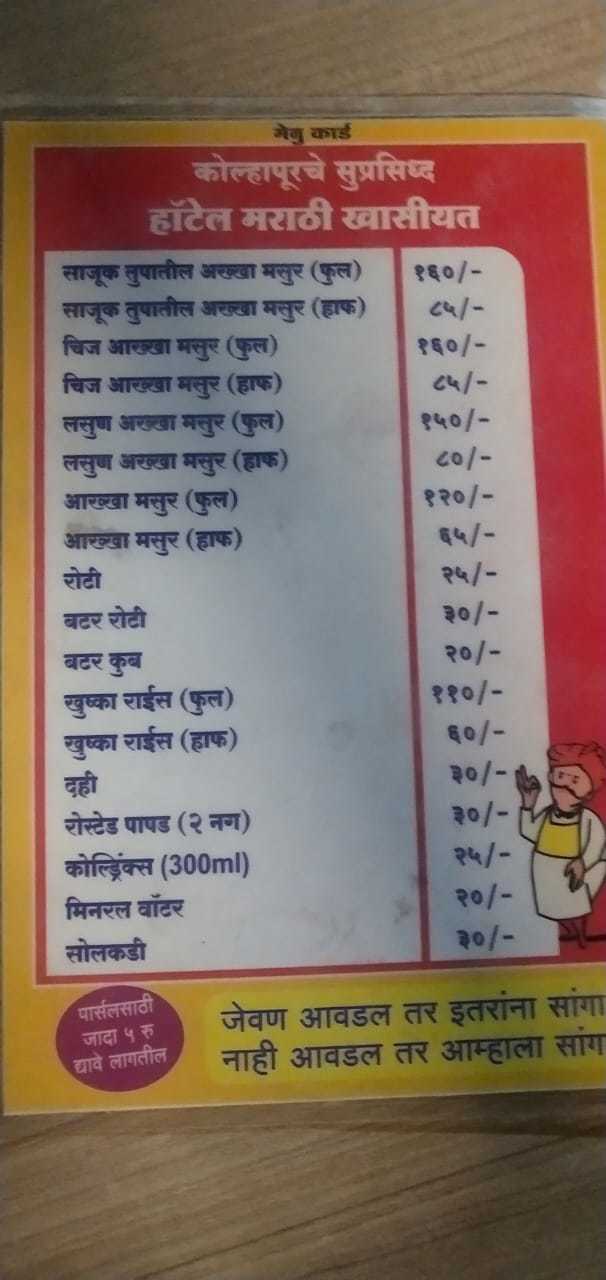 मेनु कार्ड
कोल्हापूरचे सुप्रसिध्द
हॉटेल मराठी खासीयत
साजूक तुपातील अख्खा मसुर (फुल) १६०/-
साजूक तुपातील अख्खा मसुर (हाफ) ८५/-
चिज आख्खा मसुर (फुल) १६०/-
चिज आख्खा मसुर (हाफ) ८५/-
लसुण अख्खा मसुर (फुल) १५०/-
लसुण अख्खा मसुर (हाफ) ८०/-
आख्खा मसुर (फुल) १२०/-
आख्खा मसुर (हाफ) ६५/-
रोटी २५/-
बटर रोटी ३०/-
बटर कुब २०/-
खुष्का राईस (फुल) ११०/-
खुष्का राईस (हाफ) ६०/-
दही ३०/-
रोस्टेड पापड (२ नग) ३०/-
कोल्ड्रिंक्स (300ml) २५/-
मिनरल वॉटर २०/-
सोलकडी ३०/-
पार्सलसाठी
जादा ५ रु
द्यावे लागतील
जेवण आवडल तर इतरांना सांगा
नाही आवडल तर आम्हाला सांग